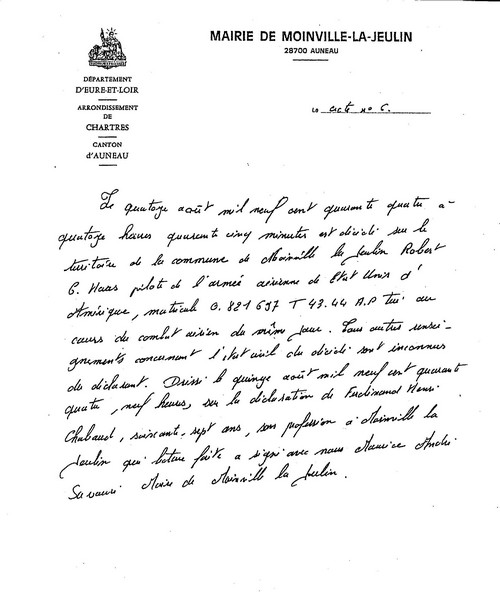 MAIRIE DE MOINVILLE-LA-JEULIN
28700 AUNEAU
DÉPARTEMENT
D'EURE-ET-LOIR
ARRONDISSEMENT
DE
CHARTRES
CANTON
d'AUNEAU
LE acte no 6.
Le quatorze août mil neuf cent quarante quatre à
quatorze heures quarante cinq minutes est décédé sur le
territoire de la commune de Moinville la Jeulin Robert
G. Haas pilote de l'armée aérienne de Etat Unis d'
Amérique, matricule O. 821 637 T 43.44 A.P tué au
cours du combat aérien du même jour. Tous autres rensei-
gnements concernant l'état civil du décédé sont inconnus
du déclarant. Dressé le quinze août mil neuf cent quarante
quatre, neuf heures, sur la déclaration de Ferdinand Henri
Chabaud, soixante-sept ans, sans profession à Moinville la
Jeulin qui lecture faite a signé avec nous Maurice André
Maire de Moinville la Jeulin.